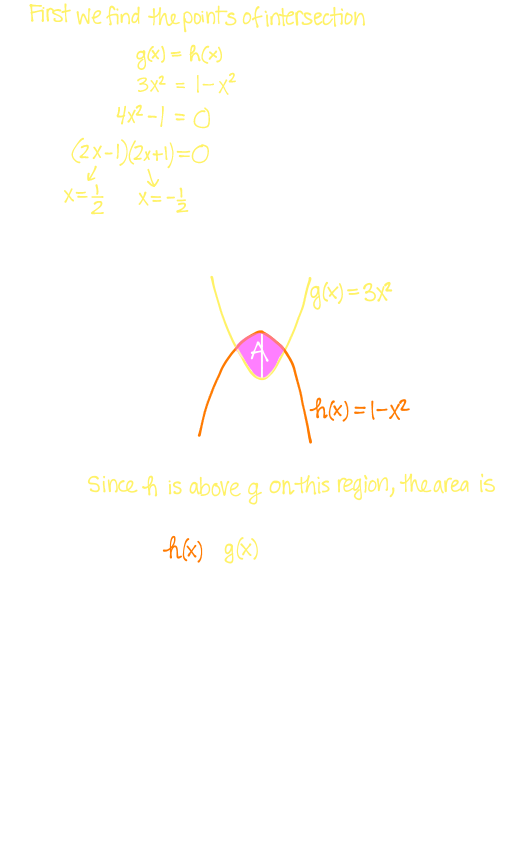 First we find the points of intersection
g(x) = h(x)
3x² = 1-x²
4x²-1 = 0
(2x-1)(2x+1)=0
↙ ↘
x=1/2 x=-1/2
g(x)=3x²
A
h(x)=1-x²
Since h is above g on this region, the area is
h(x) g(x)